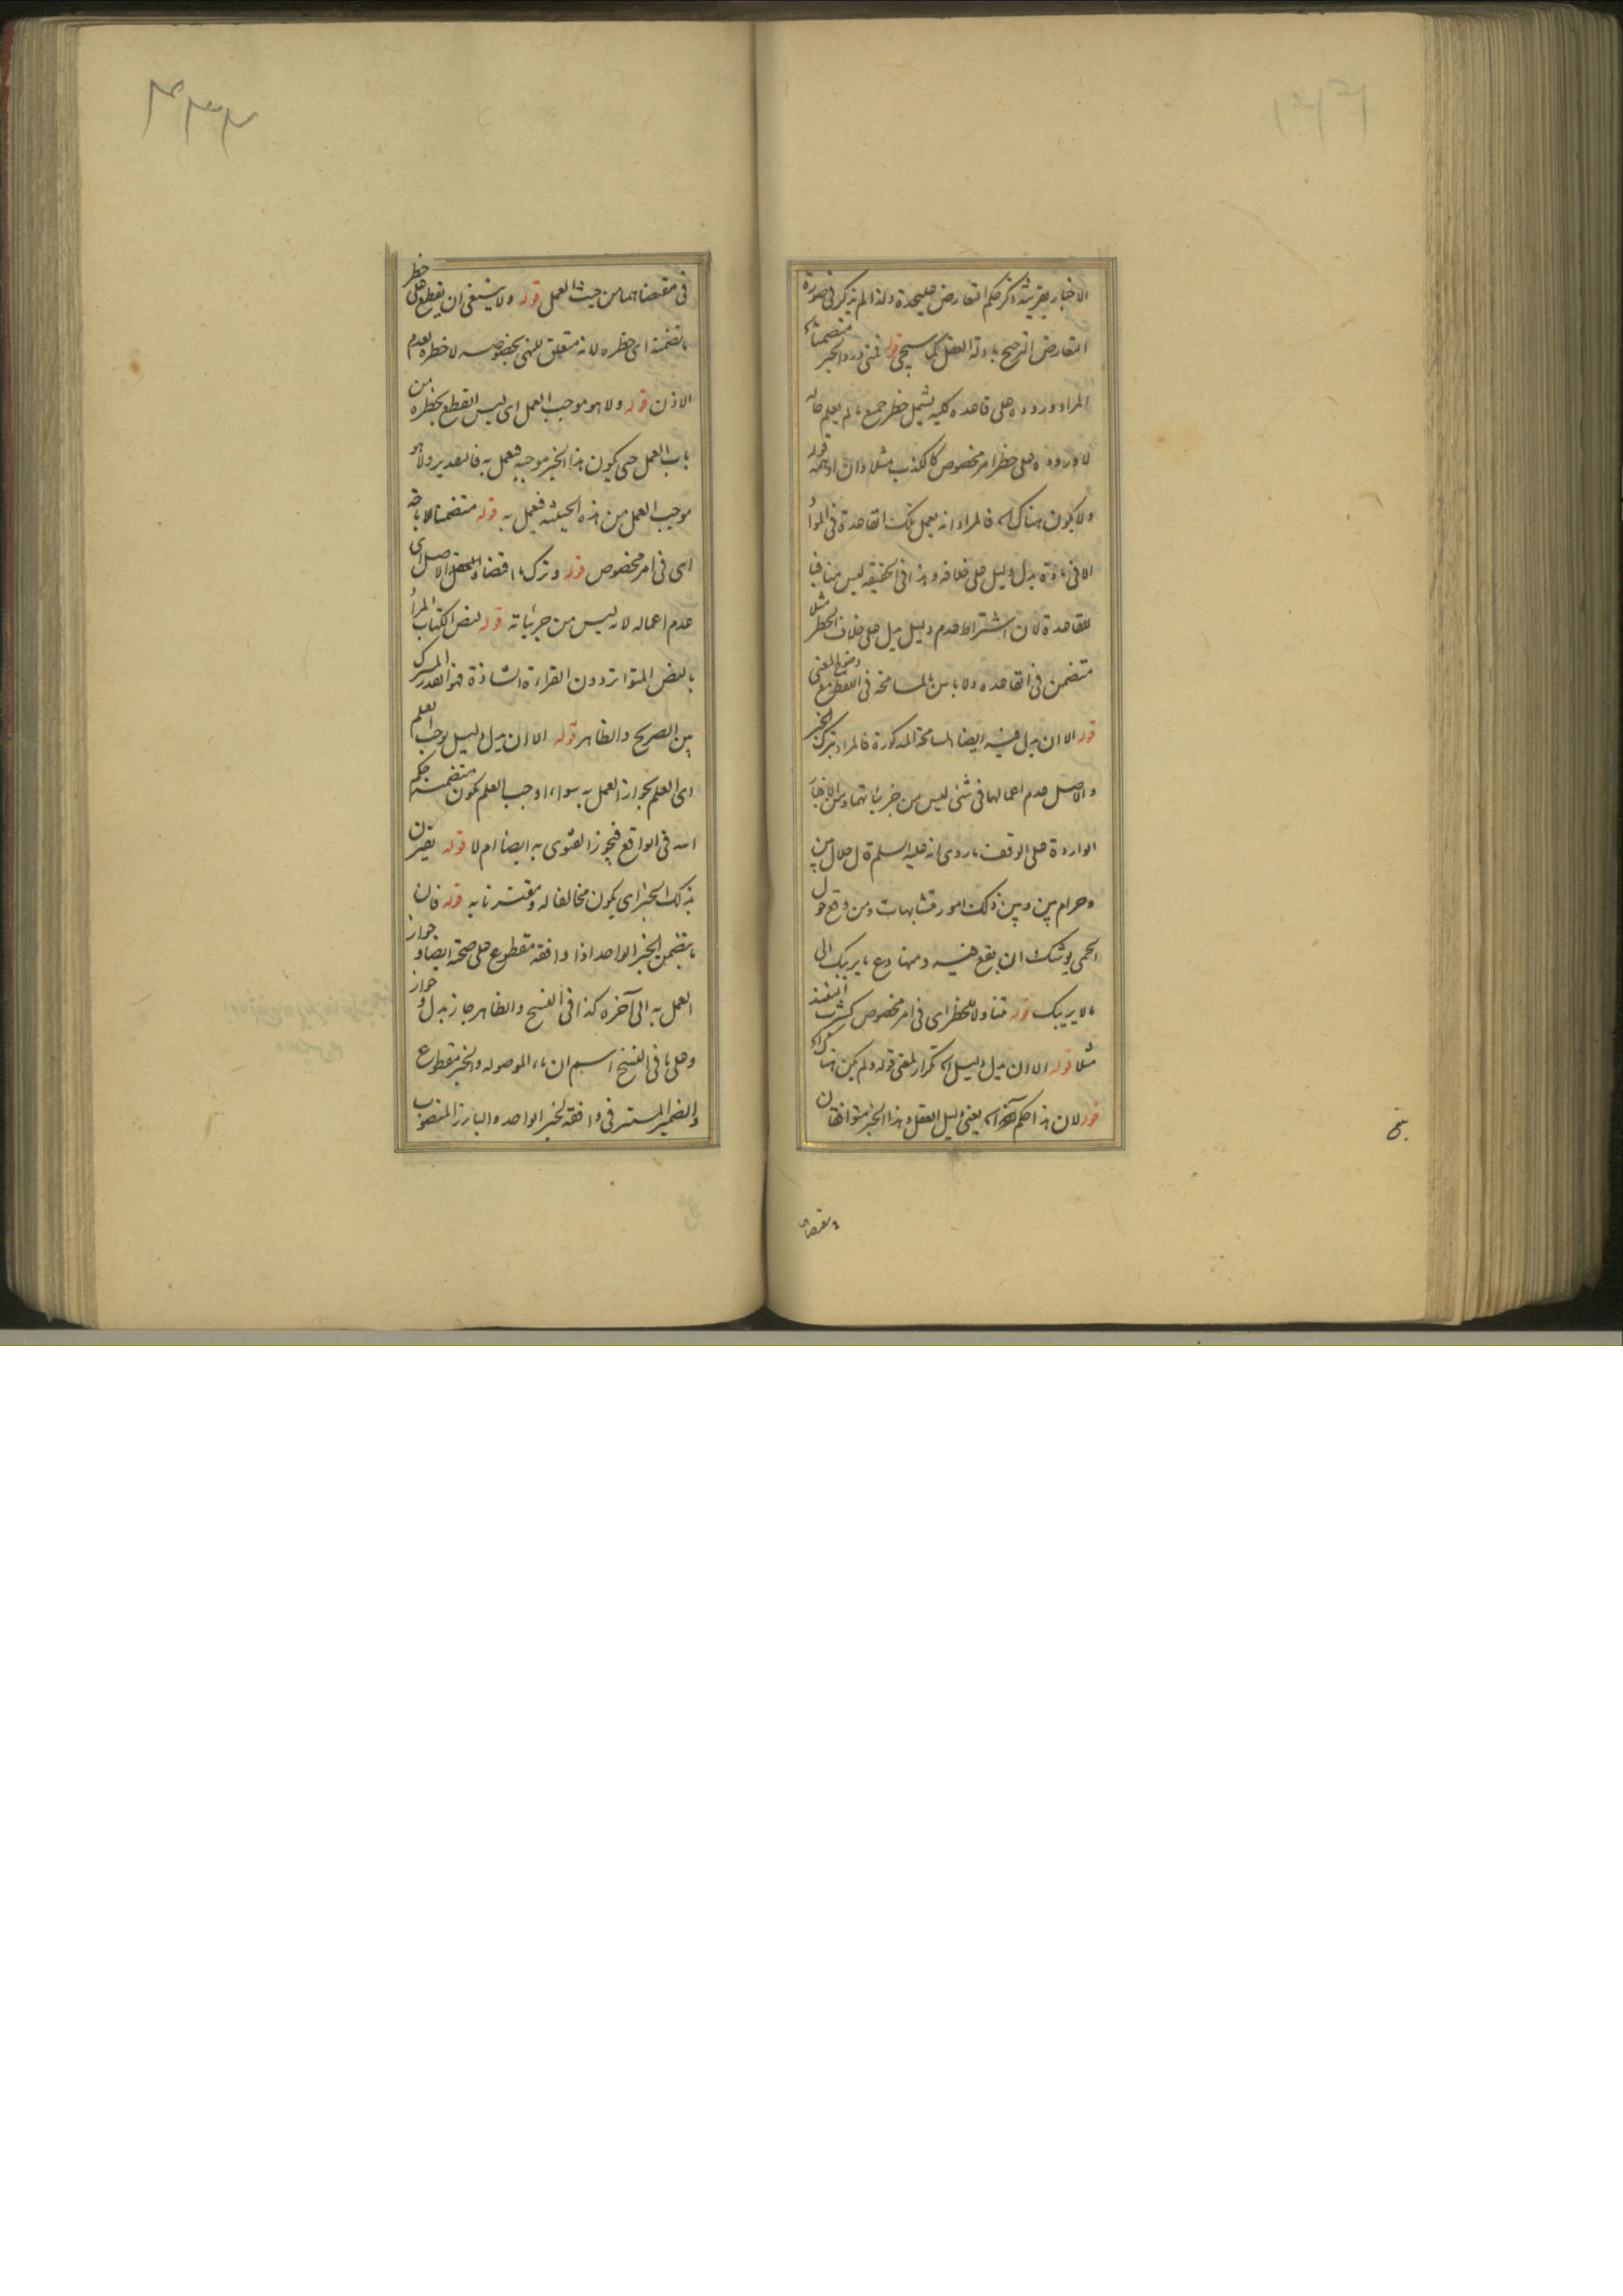 الاخبار بقرينة ذكر حكم التعارض عليحدة ولذا لم يذكر فى صورة
التعارض الترجيح بادلة العقل كما سيجى قوله فمتى ورد الخبر متضمنا اه
المراد وروده على قاعدة كلية يشمل خطر جميع ما لم يعلم حاله
لا وروده على خطر امر مخصوص كالكذب مثلا وان اوهمه قوله
ولا يكون هناك اه فالمراد انه يعمل بتلك القاعدة فى المواد
الا فى مادة يدل دليل على خلافه وهذا فى الحقيقه ليس منافيا
للقاعدة لان اشتراط عدم دليل يدل على خلاف الخطر مثلا
متضمن فى القاعدة ولا باس بالمسامحة فى اللفظ مع وضوح المعنى
قوله الا ان يدل فيه ايضا المسامحة المذكورة فالمراد بترك الخبر
والاصل عدم اعمالها فى شئ ليس من جزئياتها ومن الاخبار
الواردة على الوقف ما روى انه عليه السلم قال حلال بين
وحرام بين وبين ذلك امور متشابهات ومن وقع حول
الحمى يوشك ان يقع فيه ومنها دع ما يريبك الى
ما لا يريبك قوله متناولا للخطر اى فى امر مخصوص كشرب النبيذ
مثلا قوله الا ان يدل دليل اه تكرار لمعنى قوله ولم يكن هناك اه
قوله لان هذا حكم آخر اه يعنى دليل العقل وهذا الخبر متوافقان
فى مقتضاهما من حيث العمل قوله ولا ينبغى ان يقطع على خطر
ما تضمنه اى خطره لانه متعلق للنهى بخصوصه لا خطره لعدم
الاذن قوله ولا هو موجب العمل اى ليس القطع بخطره من
باب العمل حتى يكون هذا الخبر موجبه فيعمل به فالتقدير ولا هو
موجب العمل من هذه الحيثية فيعمل به قوله متضمنا لاباحة
اى فى امر مخصوص قوله وترك ما اقتضاه العقل الاصل اى
عدم اعماله لانه ليس من جزئياته قوله لنص الكتاب المراد
بالنص المتواتر دون القراءة الشاذة فهو القدر المشترك
بين الصريح والظاهر قوله الا ان يدل دليل يوجب العلم
اى العلم بجواز العمل به سواء اوجب العلم بكون متضمنه حكم
الله فى الواقع فيجوز الفتوى به ايضا ام لا قوله يقترن
بذلك الخبر اى يكون مخالفا له ومقترنا به قوله فان
ما يتضمن الخبر الواحد اذا وافقه مقطوع على صحته ايضا وجواز
العمل به الى آخره كذا فى النسخ والظاهر جاز بدل وجواز
وعلى ما فى النسخ اسم ان ما الموصوله والخبر مقطوع
والضمير المستتر فى وافقه لخبر الواحد والبارز المنصوب